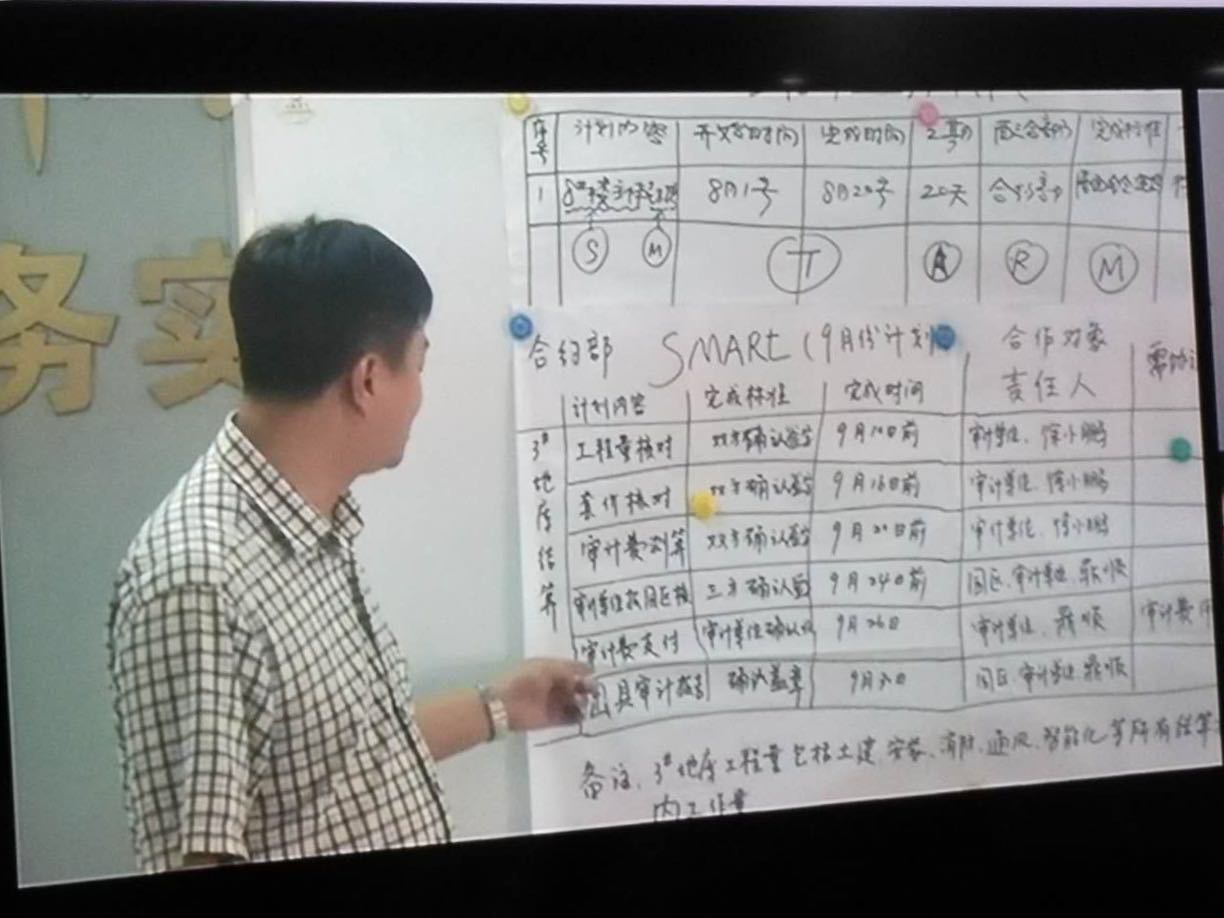 务实
序号 计划内容 开始时间 完成时间 工期 配合部门 完成标准
1 8#楼 8月1号 8月20号 20天
S M T A R M
合约部 SMART(9月份计划) 合作对象
责任人
计划内容 完成标准 完成时间
3#地库结算
工程量核对 双方确认签字 9月10日前 审计单位、徐小鹏
套价核对 双方确认签字 9月16日前 审计单位、徐小鹏
审计费测算 双方确认签字 9月20日前 审计单位、徐小鹏
审计单位报园区核 三方确认 9月24日前 园区、审计单位
审计费支付 审计单位确认 9月26日 审计单位 审计费
出具审计报告 确认盖章 9月30日 园区、审计单位
备注、3#地库工程量包括土建、安装、消防、通风、智能化等所有结算
内工作量